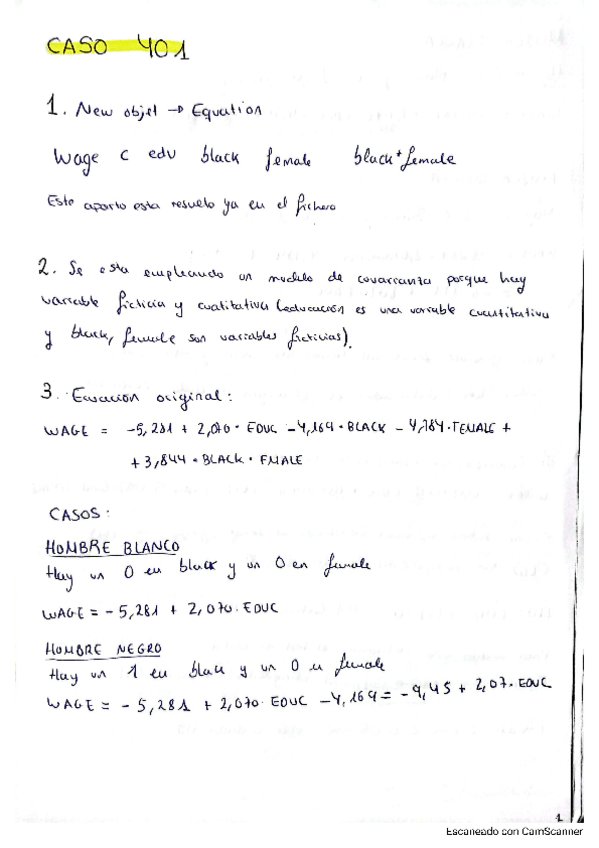 CASO 401
1. New objet → Equation
Wage c edu black female black*female
Este aparto esta resuelto ya en el fichero
2. Se esta empleando un modelo de covarianza porque hay
variable ficticia y cualitativa (educación es una variable cuantitativa
y black, female son variables ficticias).
3. Ecuacion original:
WAGE = -5,281 + 2,070 · EDUC -4,169 · BLACK - 4,784 · FEMALE +
+ 3,844 · BLACK · FMALE
CASOS:
HOMBRE BLANCO
Hay un 0 en black y un 0 en female
WAGE = - 5,281 + 2,070 · EDUC
HOMBRE NEGRO
Hay un 1 en black y un 0 en female
WAGE = - 5,281 + 2,070 · EDUC -4,169 = -9,45 + 2,07 · EDUC
1
Escaneado con CamScanner